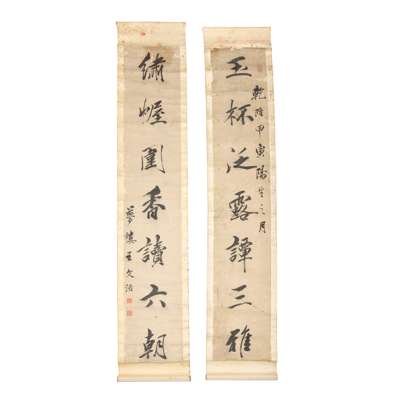 玉杯泛露譚三雅
乾隆甲寅陽生之月
繡幄圍香讀六朝
夢樓王文治